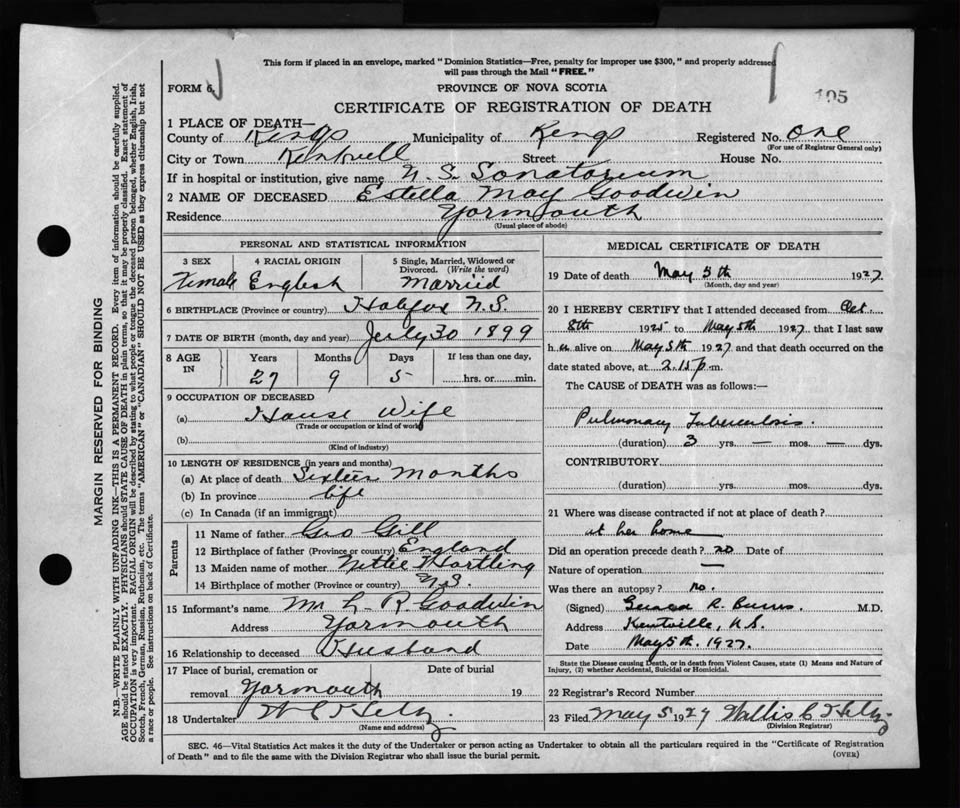 This form if placed in an envelope, marked "Dominion Statistics—Free, penalty for improper use $300," and properly addressed
will pass through the Mail "FREE."
FORM 6.
PROVINCE OF NOVA SCOTIA
CERTIFICATE OF REGISTRATION OF DEATH
195
1 PLACE OF DEATH—
County of Kings Municipality of Kings Registered No. One
(For use of Registrar General only)
City or Town Kentville Street House No.
If in hospital or institution, give name N. S. Sanatorium
2 NAME OF DECEASED Estella May Goodwin
Residence Yarmouth
(Usual place of abode)
PERSONAL AND STATISTICAL INFORMATION
3 SEX 4 RACIAL ORIGIN 5 Single, Married, Widowed or
Divorced. (Write the word)
Female English Married
6 BIRTHPLACE (Province or country) Halifax N.S.
7 DATE OF BIRTH (month, day and year) July 30 1899
8 AGE IN Years Months Days If less than one day,
27 9 5 hrs. or min.
9 OCCUPATION OF DECEASED
(a) House Wife
(Trade or occupation or kind of work)
(b)
(Kind of industry)
10 LENGTH OF RESIDENCE (in years and months)
(a) At place of death Sixteen Months
(b) In province life
(c) In Canada (if an immigrant)
Parents
11 Name of father Geo Gill
12 Birthplace of father (Province or country) England
13 Maiden name of mother Nettie Hartling
14 Birthplace of mother (Province or country) N.S.
15 Informant's name M L R Goodwin
Address Yarmouth
16 Relationship to deceased Husband
17 Place of burial, cremation or Date of burial
removal Yarmouth 19
18 Undertaker
(Name and address)
MEDICAL CERTIFICATE OF DEATH
19 Date of death May 5th 1927
(Month, day and year)
20 I HEREBY CERTIFY that I attended deceased from Oct.
8th 1925 to May 5th 1927, that I last saw
h er alive on May 5th 1927 and that death occurred on the
date stated above, at 2.15 p.m.
The CAUSE of DEATH was as follows:—
Pulmonary Tuberculosis.
(duration) 3 yrs. — mos. — dys.
CONTRIBUTORY
(duration) yrs. mos. dys.
21 Where was disease contracted if not at place of death?
at her home
Did an operation precede death? no Date of
Nature of operation —
Was there an autopsy? no.
(Signed) Gerald R. Burns. M.D.
Address Kentville, N.S.
Date May 5th. 1927.
State the Disease causing Death, or in death from Violent Causes, state (1) Means and Nature of
Injury, (2) whether Accidental, Suicidal or Homicidal.
22 Registrar's Record Number
23 Filed May 5 1927 Willis C
(Division Registrar)
SEC. 46—Vital Statistics Act makes it the duty of the Undertaker or person acting as Undertaker to obtain all the particulars required in the "Certificate of Registration
of Death" and to file the same with the Division Registrar who shall issue the burial permit.
(OVER)
MARGIN RESERVED FOR BINDING
N.B.—WRITE PLAINLY WITH UNFADING INK—THIS IS A PERMANENT RECORD. Every item of information should be carefully supplied.
AGE should be stated EXACTLY. PHYSICIANS should STATE CAUSE OF DEATH in plain terms, so that it may be properly classified. Exact statement of
OCCUPATION is very important. RACIAL ORIGIN will be described by stating to what people or tongue the deceased person belonged, whether English, Irish,
Scotch, French, German, Russian, Ruthenian, etc. The terms "AMERICAN" or "CANADIAN" SHOULD NOT BE USED as they express citizenship but not
a race or people. See instructions on back of Certificate.